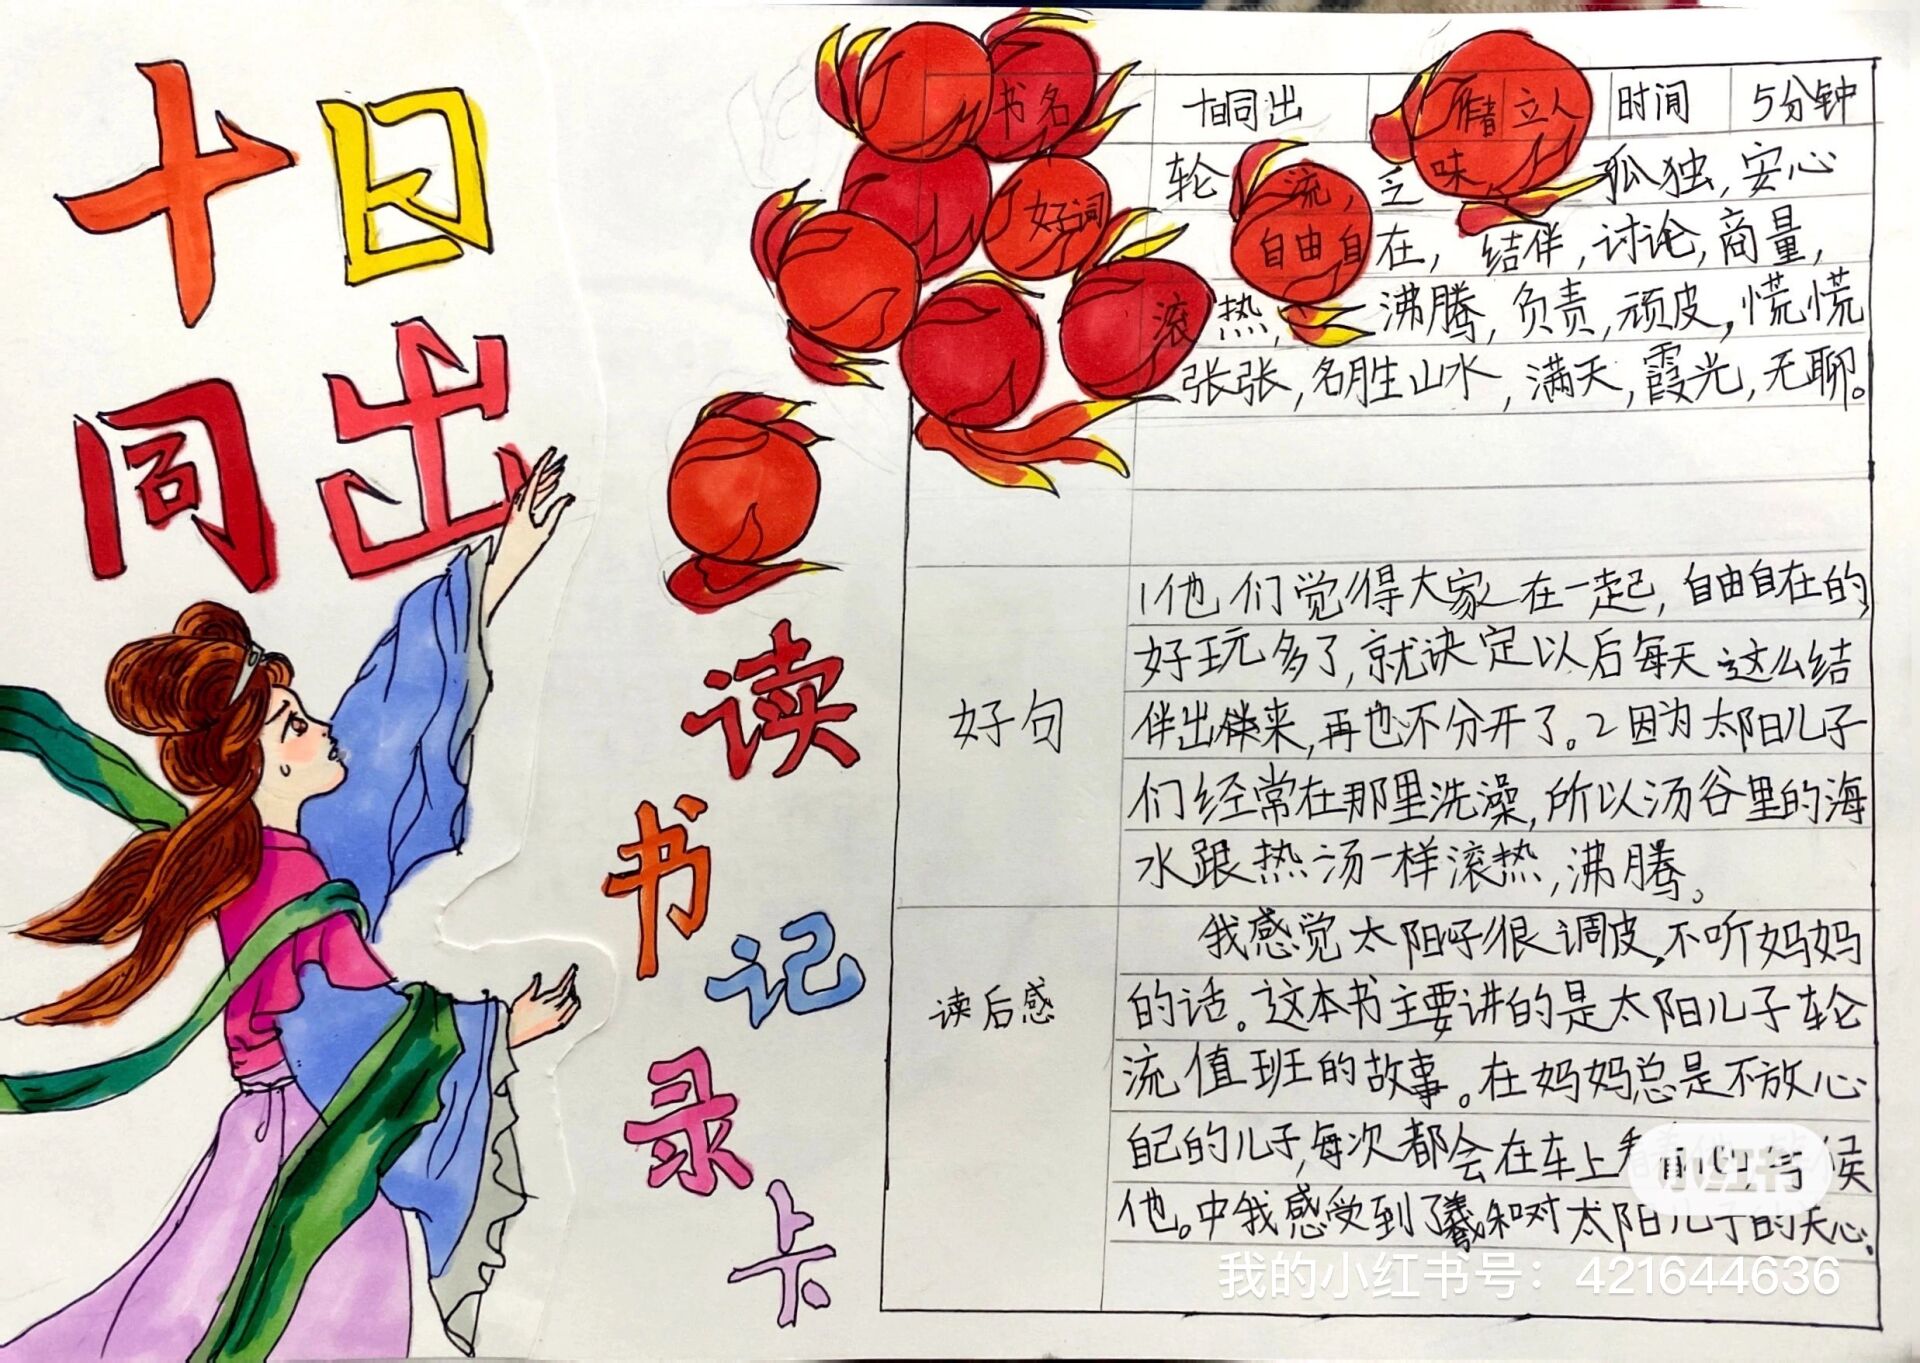 十日
同出
读
书
记
录
卡
书名 十日同出 作者 立人 时间 5分钟
好词
轮流，乏味 孤独，安心
自由自在，结伴，讨论，商量，
滚热，沸腾，负责，顽皮，慌慌
张张，名胜山水，满天，霞光，无聊。
好句
1他们觉得大家在一起，自由自在的，
好玩多了，就决定以后每天这么结
伴出来，再也不分开了。2因为太阳儿子
们经常在那里洗澡，所以汤谷里的海
水跟热汤一样滚热，沸腾。
读后感
我感觉太阳儿子很调皮，不听妈妈
的话。这本书主要讲的是太阳儿子轮
流值班的故事。在妈妈总是不放心
自己的儿子，每次都会在车上
他。中我感受到了羲和对太阳儿子的关心。
小红书
我的小红书号：421644636